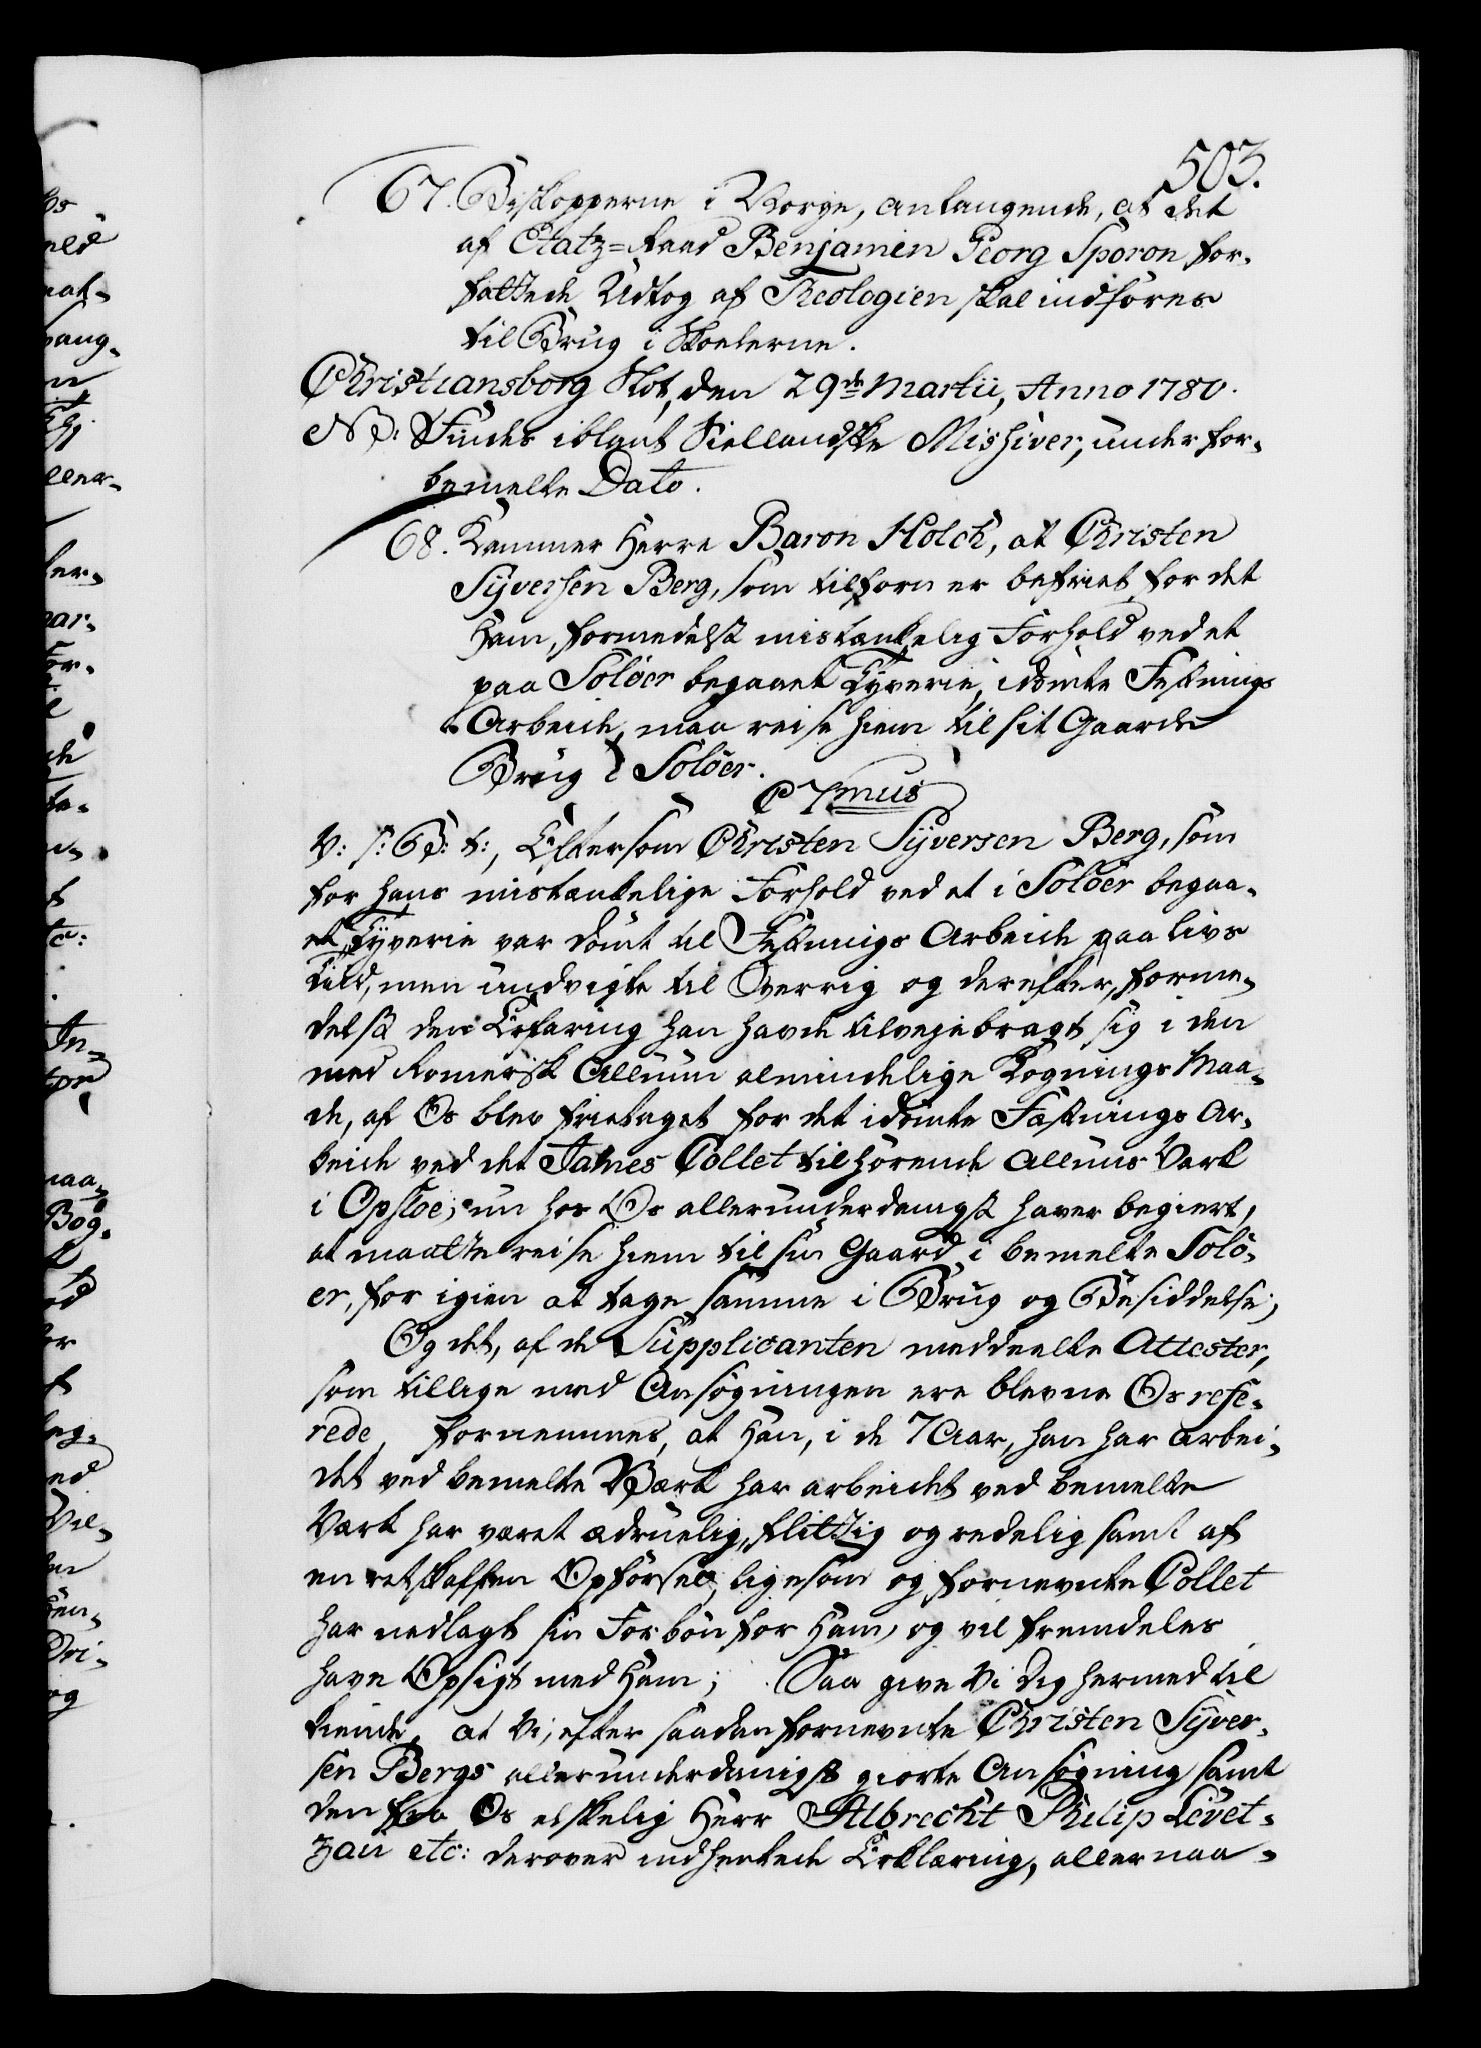 503.
67. Biskopperne i Norge, anlangende, at det
af Etatz-Raad Benjamin Georg Sporon for-
fattede Udtog af Theologien skal indføres
til Brug i Skolerne.
Christiansborg Slot, den 29de Martii, Anno 1780.
NB: Findes iblant Siellandske Missiver, under for-
bemelte Dato.
68. Kammer Herre Baron Holck, at Christen
Syversen Berg, som tilforn er befriet for det
Ham, formedelst mistænkelig Forhold ved et
paa Soløer begaaet Tyverie, idømte Festnings
Arbeide, maa reise hiem til sit Gaards
Brug i Soløer.
C 7mus
V: s: G: t:, Eftersom Christen Syversen Berg, som
for hans mistænkelige Forhold ved et i Soløer begaa-
et Tyverie var dømt til Festnings Arbeide paa livs
Tiid, men undvigte til Sverrig og derefter, forme-
delst den Erfaring han havde tilvejebragt sig i den
med Romersk Allun almindelige Kognings Maa-
de, af Os blev fritaget for det idømte Fæstnings Ar-
beide ved det James Collet tilhørende Alluns Værk
i Opsloe, nu hos Os allerunderdanigst haver begiert,
at maatte reise hiem til sin Gaard i bemelte Solø-
er, for igien at tage samme i Brug og Besiddelse;
Og det, af de Supplicanten meddeelte Attester,
som tillige med Ansøgningen ere blevne Os refe-
rede, fornemmes, at Han, i de 7 Aar, han har arbei-
det ved bemelte Værk har arbeidet ved bemelte
Værk har været ædruelig, flittig og redelig samt af
en retskaffen Opførsel, ligesom og fornevnte Collet
har nedlagt sin Forbøn for Ham, og vil fremdeles
have Opsigt med Ham; Saa give Vi Dig hermed til
kiende, at Vi, efter saadan fornevnte Christen Syver-
sen Bergs allerunderdanigst giorte Ansøgning samt
den fra Os elskelig Herr Albrecht Philip Levet-
zau etc: derover indhentede Erklæring, allernaa-